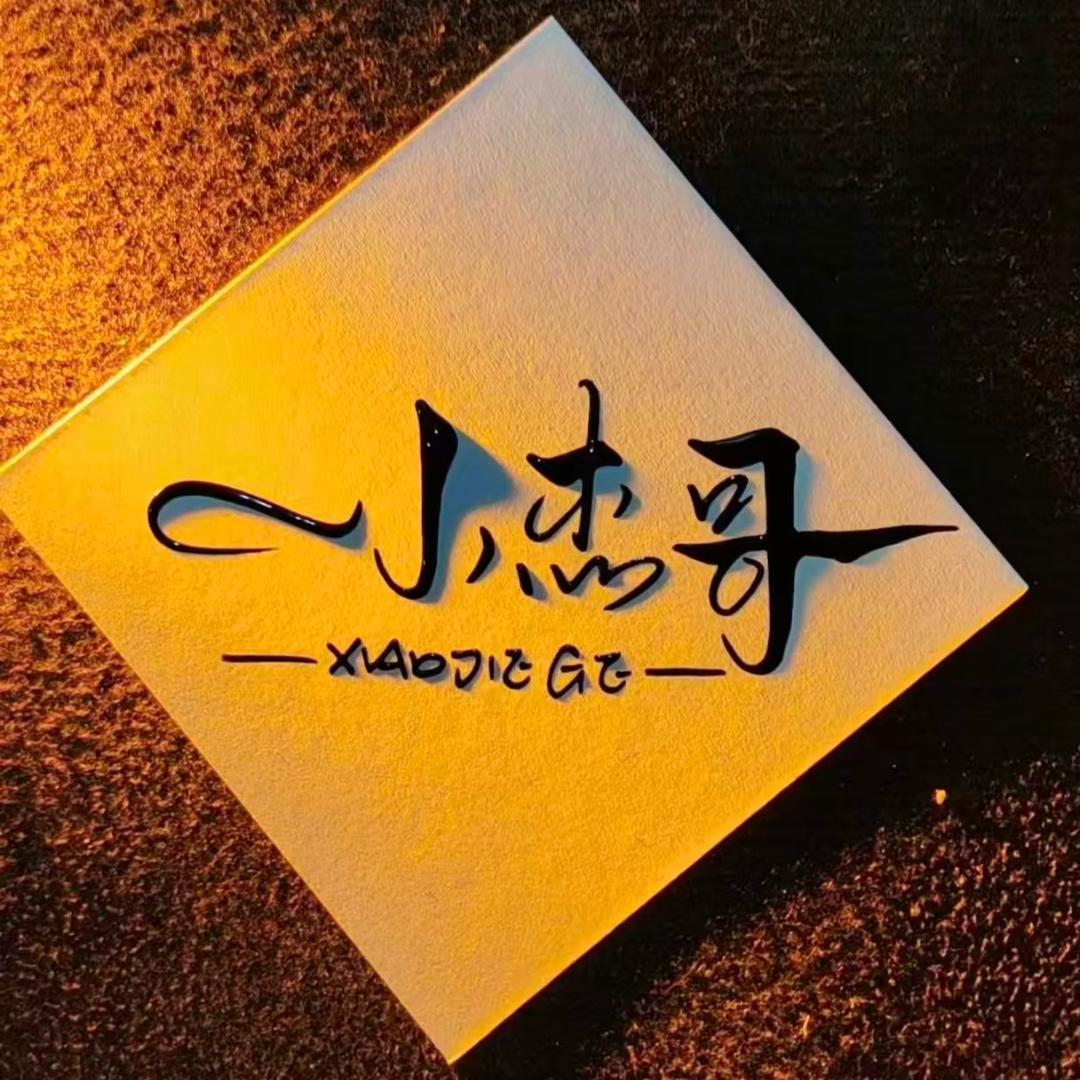 小杰哥
XIAOJIE GE